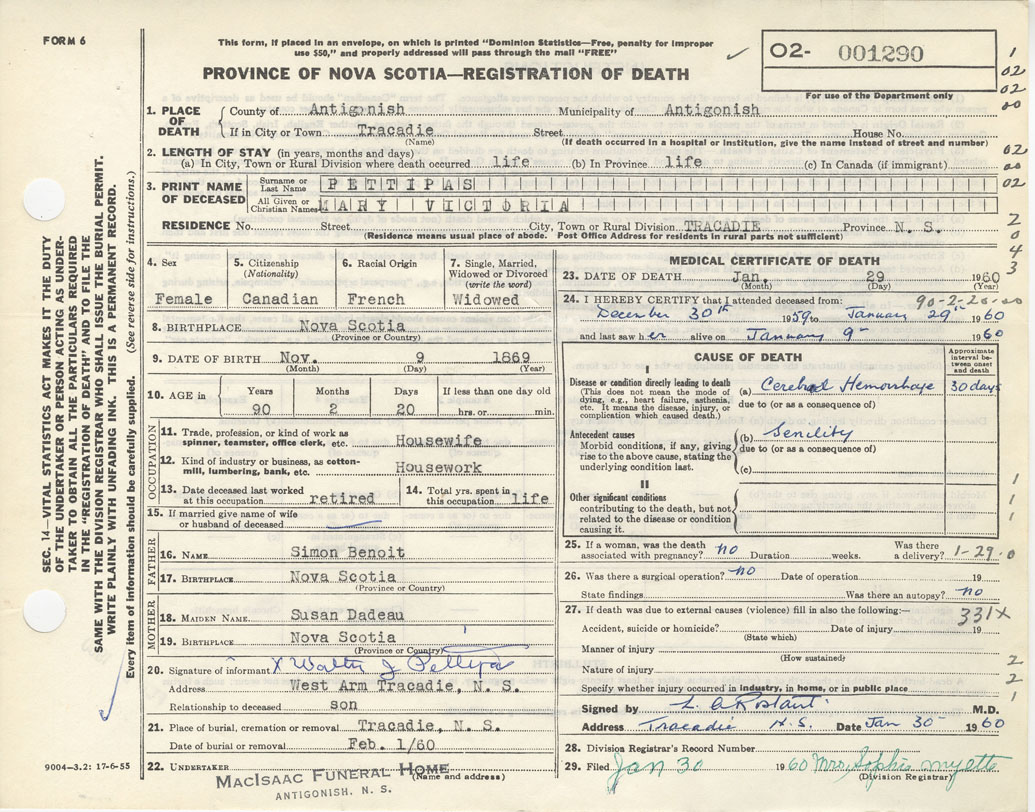 FORM 6
This form, if placed in an envelope, on which is printed "Dominion Statistics—Free, penalty for improper
use $50," and properly addressed will pass through the mail "FREE"
O2- 001290
For use of the Department only
PROVINCE OF NOVA SCOTIA—REGISTRATION OF DEATH
1. PLACE OF DEATH County of Antigonish Municipality of Antigonish
If in City or Town Tracadie Street House No.
(Name) (If death occurred in a hospital or institution, give the name instead of street and number)
2. LENGTH OF STAY (in years, months and days)
(a) In City, Town or Rural Division where death occurred life (b) In Province life (c) In Canada (if immigrant)
3. PRINT NAME OF DECEASED Surname or Last Name PETTIPAS
All Given or Christian Names MARY VICTORIA
RESIDENCE No. Street City, Town or Rural Division TRACADIE Province N. S.
(Residence means usual place of abode. Post Office Address for residents in rural parts not sufficient)
SEC. 14—VITAL STATISTICS ACT MAKES IT THE DUTY
OF THE UNDERTAKER OR PERSON ACTING AS UNDER-
TAKER TO OBTAIN ALL THE PARTICULARS REQUIRED
IN THE "REGISTRATION OF DEATH" AND TO FILE THE
SAME WITH THE DIVISION REGISTRAR WHO SHALL ISSUE THE BURIAL PERMIT.
WRITE PLAINLY WITH UNFADING INK. THIS IS A PERMANENT RECORD.
Every item of information should be carefully supplied. (See reverse side for instructions.)
4. Sex
Female
5. Citizenship
(Nationality)
Canadian
6. Racial Origin
French
7. Single, Married,
Widowed or Divorced
(write the word)
Widowed
8. BIRTHPLACE Nova Scotia
(Province or Country)
9. DATE OF BIRTH Nov. 9 1869
(Month) (Day) (Year)
10. AGE in Years Months Days If less than one day old
90 2 20 hrs. or min.
OCCUPATION
11. Trade, profession, or kind of work as
spinner, teamster, office clerk, etc. Housewife
12. Kind of industry or business, as cotton-
mill, lumbering, bank, etc. Housework
13. Date deceased last worked
at this occupation retired
14. Total yrs. spent in
this occupation life
15. If married give name of wife
or husband of deceased
FATHER
16. NAME Simon Benoit
17. BIRTHPLACE Nova Scotia
(Province or Country)
MOTHER
18. MAIDEN NAME Susan Dadeau
19. BIRTHPLACE Nova Scotia
(Province or Country)
20. Signature of informant X Walter J Pettipas
Address West Arm Tracadie, N. S.
Relationship to deceased son
21. Place of burial, cremation or removal Tracadie, N. S.
Date of burial or removal Feb. 1/60
22. UNDERTAKER MACISAAC FUNERAL HOME
(Name and address)
ANTIGONISH, N. S.
9004—3.2: 17-6-55
MEDICAL CERTIFICATE OF DEATH
23. DATE OF DEATH Jan. 29 1960
(Month) (Day) (Year)
90-2-20-00
24. I HEREBY CERTIFY that I attended deceased from:
December 30th 1959 to January 29th 1960
and last saw her alive on January 9th 1960
CAUSE OF DEATH
Approximate
interval between
onset and death
I
Disease or condition directly leading to death
(This does not mean the mode of
dying, e.g., heart failure, asthenia,
etc. It means the disease, injury, or
complication which caused death.)
(a) Cerebral Hemorrhage 30 days
due to (or as a consequence of)
Antecedent causes
Morbid conditions, if any, giving
rise to the above cause, stating the
underlying condition last.
(b) Senility
due to (or as a consequence of)
(c)
II
Other significant conditions
contributing to the death, but not
related to the disease or condition
causing it.
25. If a woman, was the death
associated with pregnancy? no Duration weeks. Was there
a delivery? 1-29-0
26. Was there a surgical operation? no Date of operation 19
State findings Was there an autopsy? no
27. If death was due to external causes (violence) fill in also the following:—
331X
Accident, suicide or homicide? Date of injury 19
(State which)
Manner of injury
(How sustained)
Nature of injury
Specify whether injury occurred in industry, in home, or in public place
Signed by M.D.
Address Tracadie N.S. Date Jan 30 1960
28. Division Registrar's Record Number
29. Filed Jan 30 1960 Mrs Sophie Myette
(Division Registrar)
1
02
02
00
02
00
02
2
0
4
3
1
1
1
2
2
1